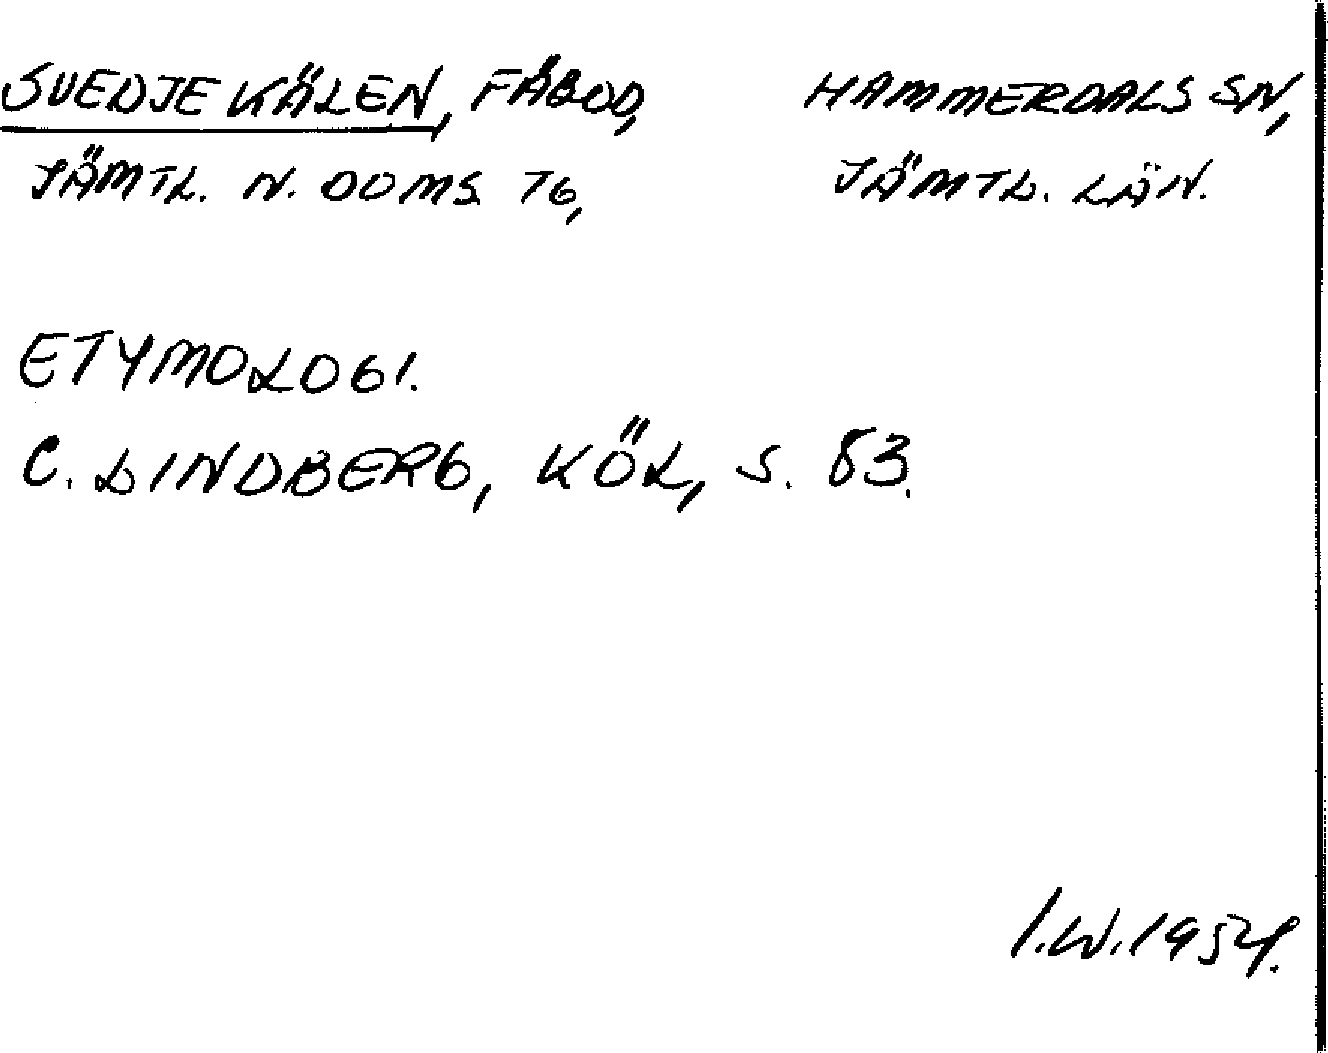 SVEDJEKÄLEN, FÄBOD, HAMMERDALS SN,
JÄMTL. N. DOMS. TG, JÄMTL. LÄN.
ETYMOLOGI.
C. LINDBERG, KÖL, S. 83.
I.W. 1954.